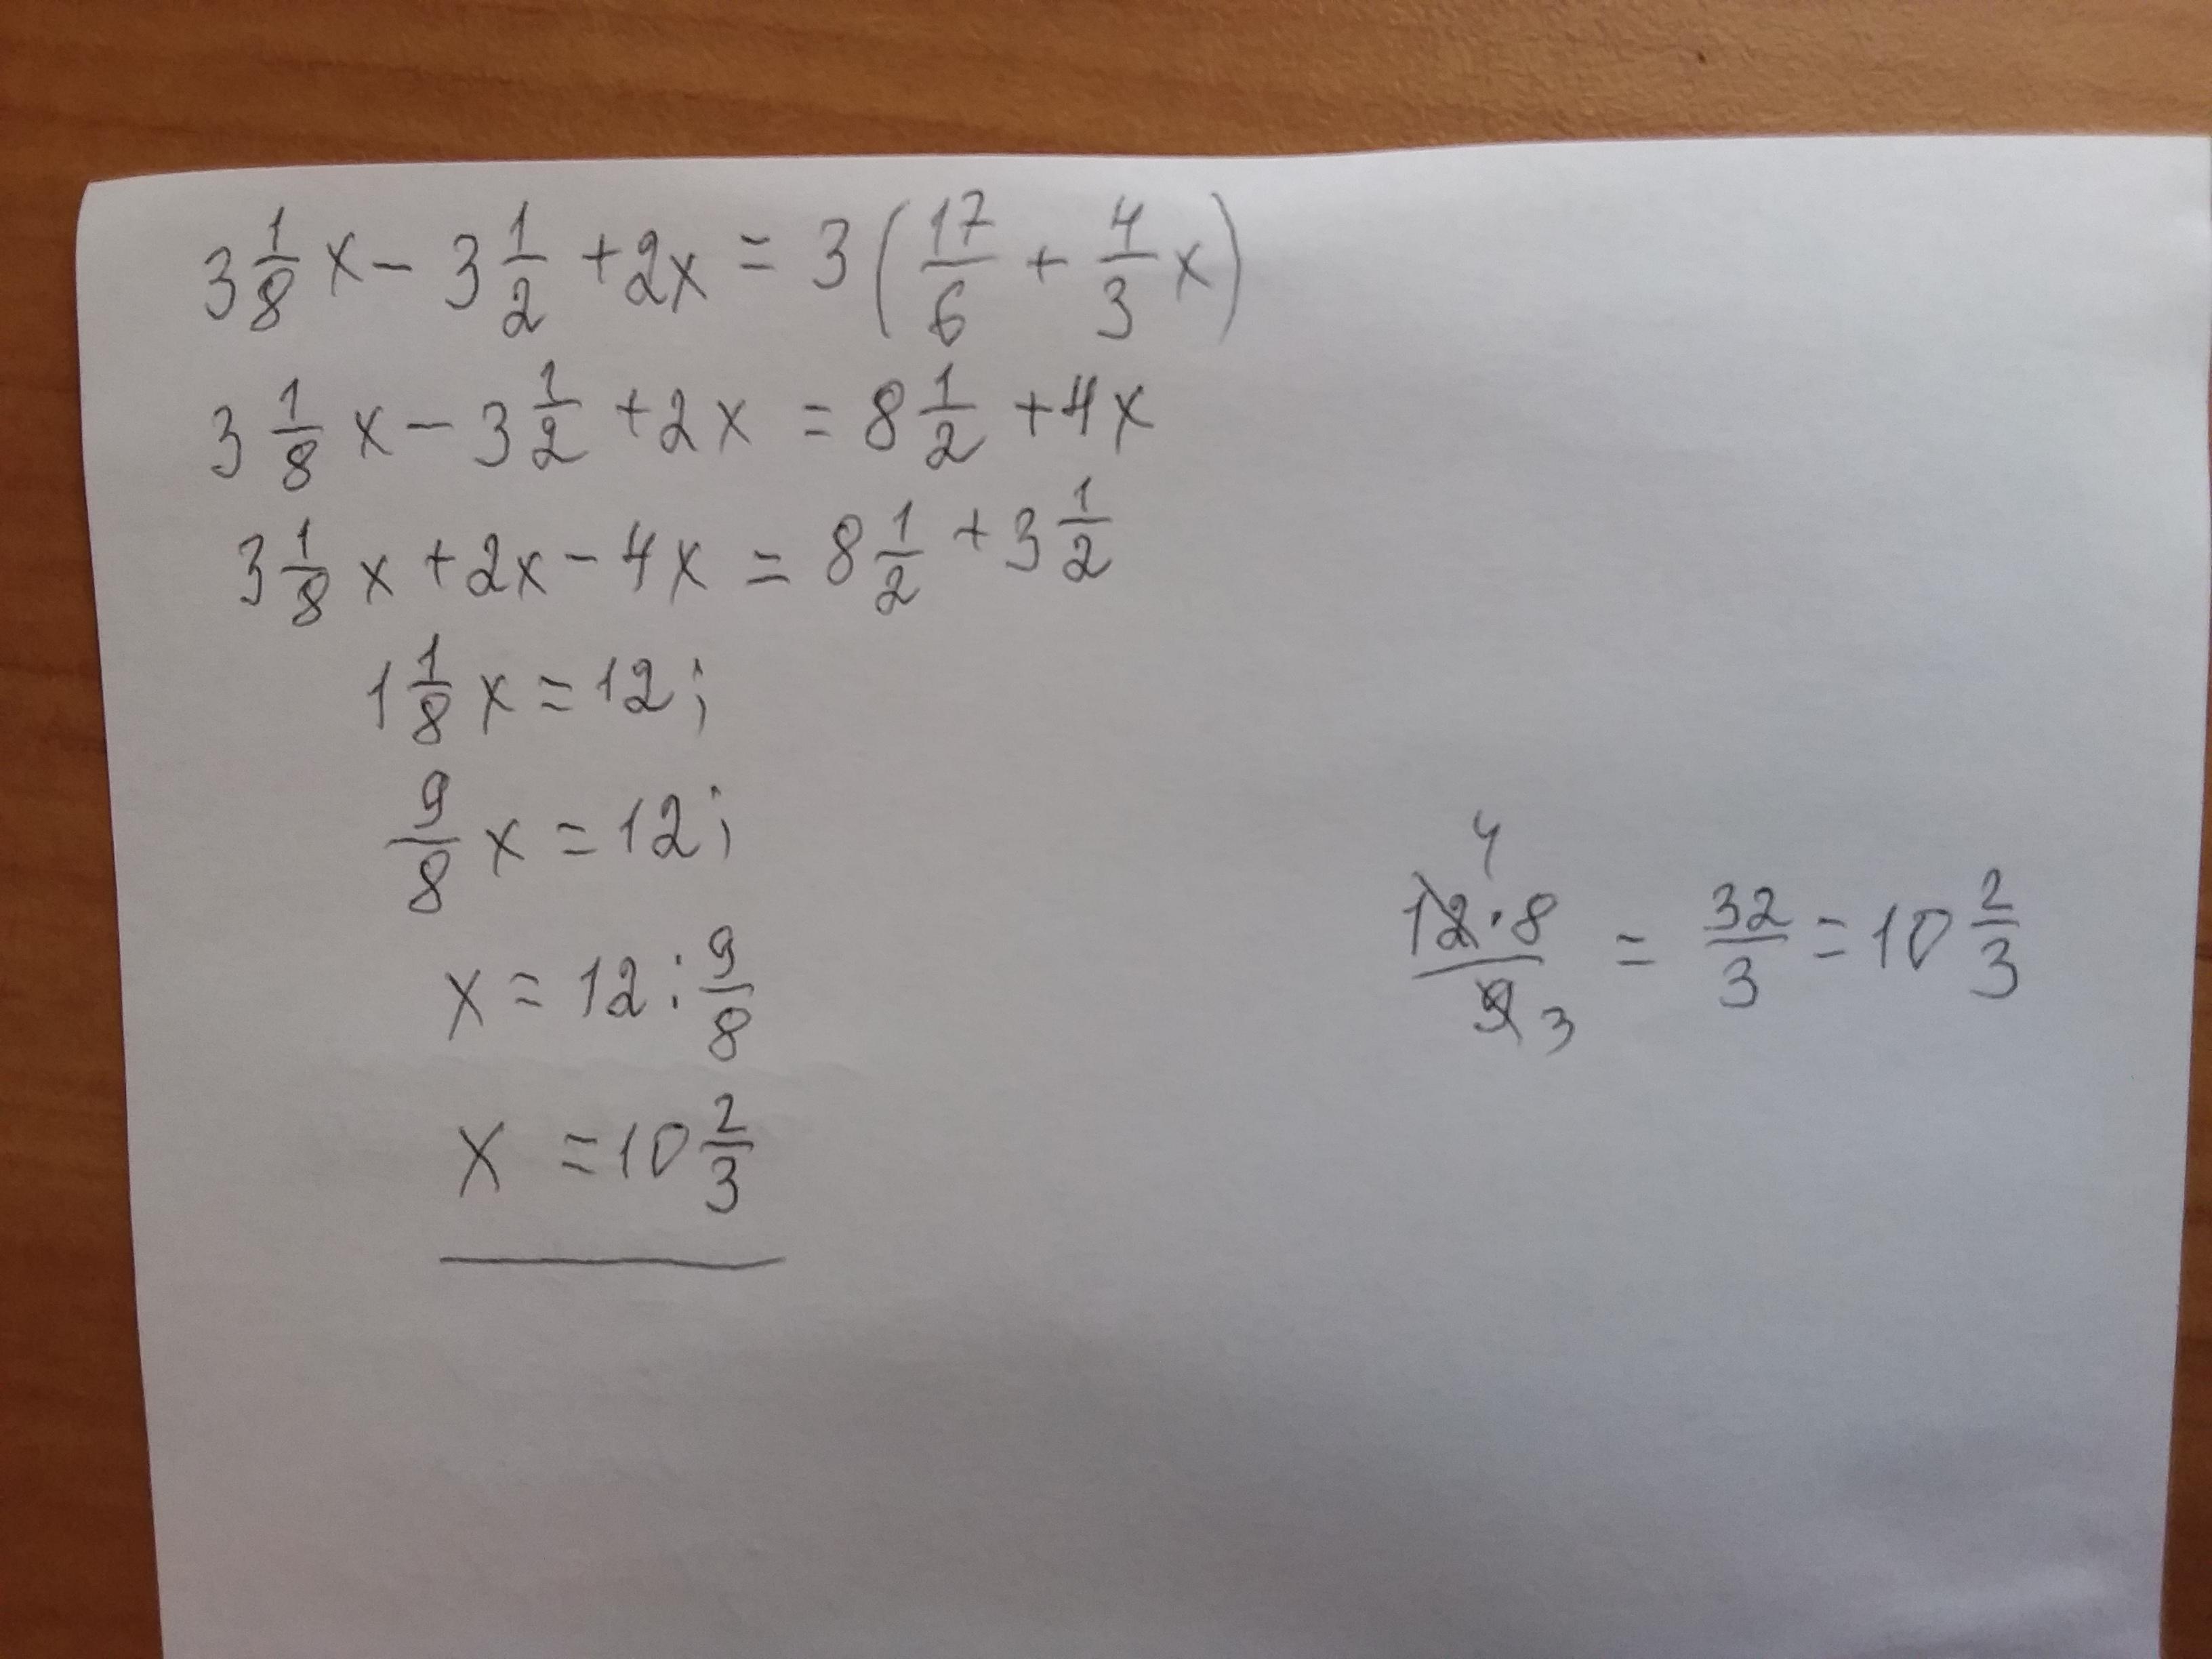 3 1/8 x - 3 1/2 + 2x = 3 (17/6 + 4/3 x)
3 1/8 x - 3 1/2 + 2x = 8 1/2 + 4x
3 1/8 x + 2x - 4x = 8 1/2 + 3 1/2
1 1/8 x = 12;
9/8 x = 12;
x = 12 : 9/8
x = 10 2/3
4
12·8/9 3 = 32/3 = 10 2/3